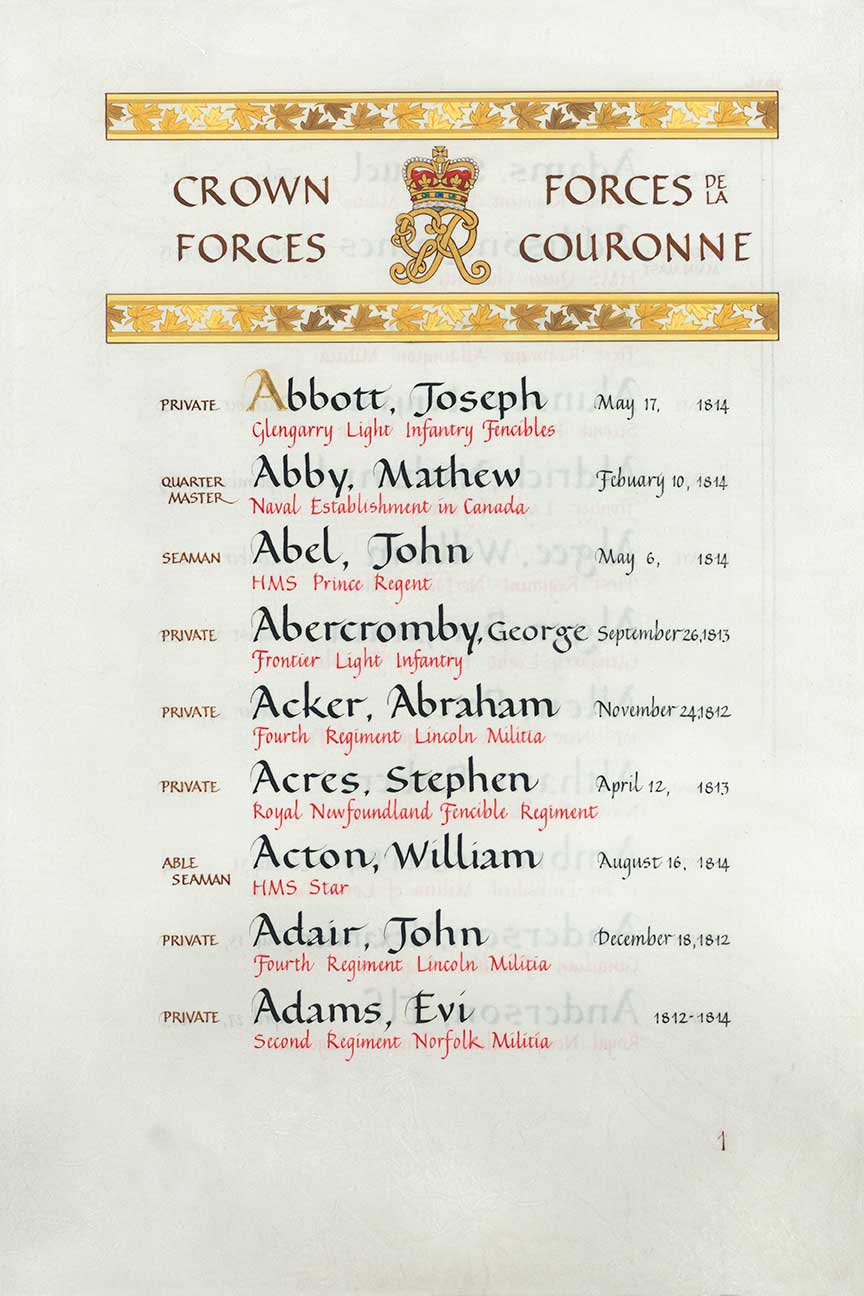 CROWN FORCES DE LA
FORCES COURONNE
PRIVATE Abbott, Joseph May 17, 1814
Glengarry Light Infantry Fencibles
QUARTER MASTER Abby, Mathew Febuary 10, 1814
Naval Establishment in Canada
SEAMAN Abel, John May 6, 1814
HMS Prince Regent
PRIVATE Abercromby, George September 26, 1813
Frontier Light Infantry
PRIVATE Acker, Abraham November 24, 1812
Fourth Regiment Lincoln Militia
PRIVATE Acres, Stephen April 12, 1813
Royal Newfoundland Fencible Regiment
ABLE SEAMAN Acton, William August 16, 1814
HMS Star
PRIVATE Adair, John December 18, 1812
Fourth Regiment Lincoln Militia
PRIVATE Adams, Evi 1812-1814
Second Regiment Norfolk Militia
1